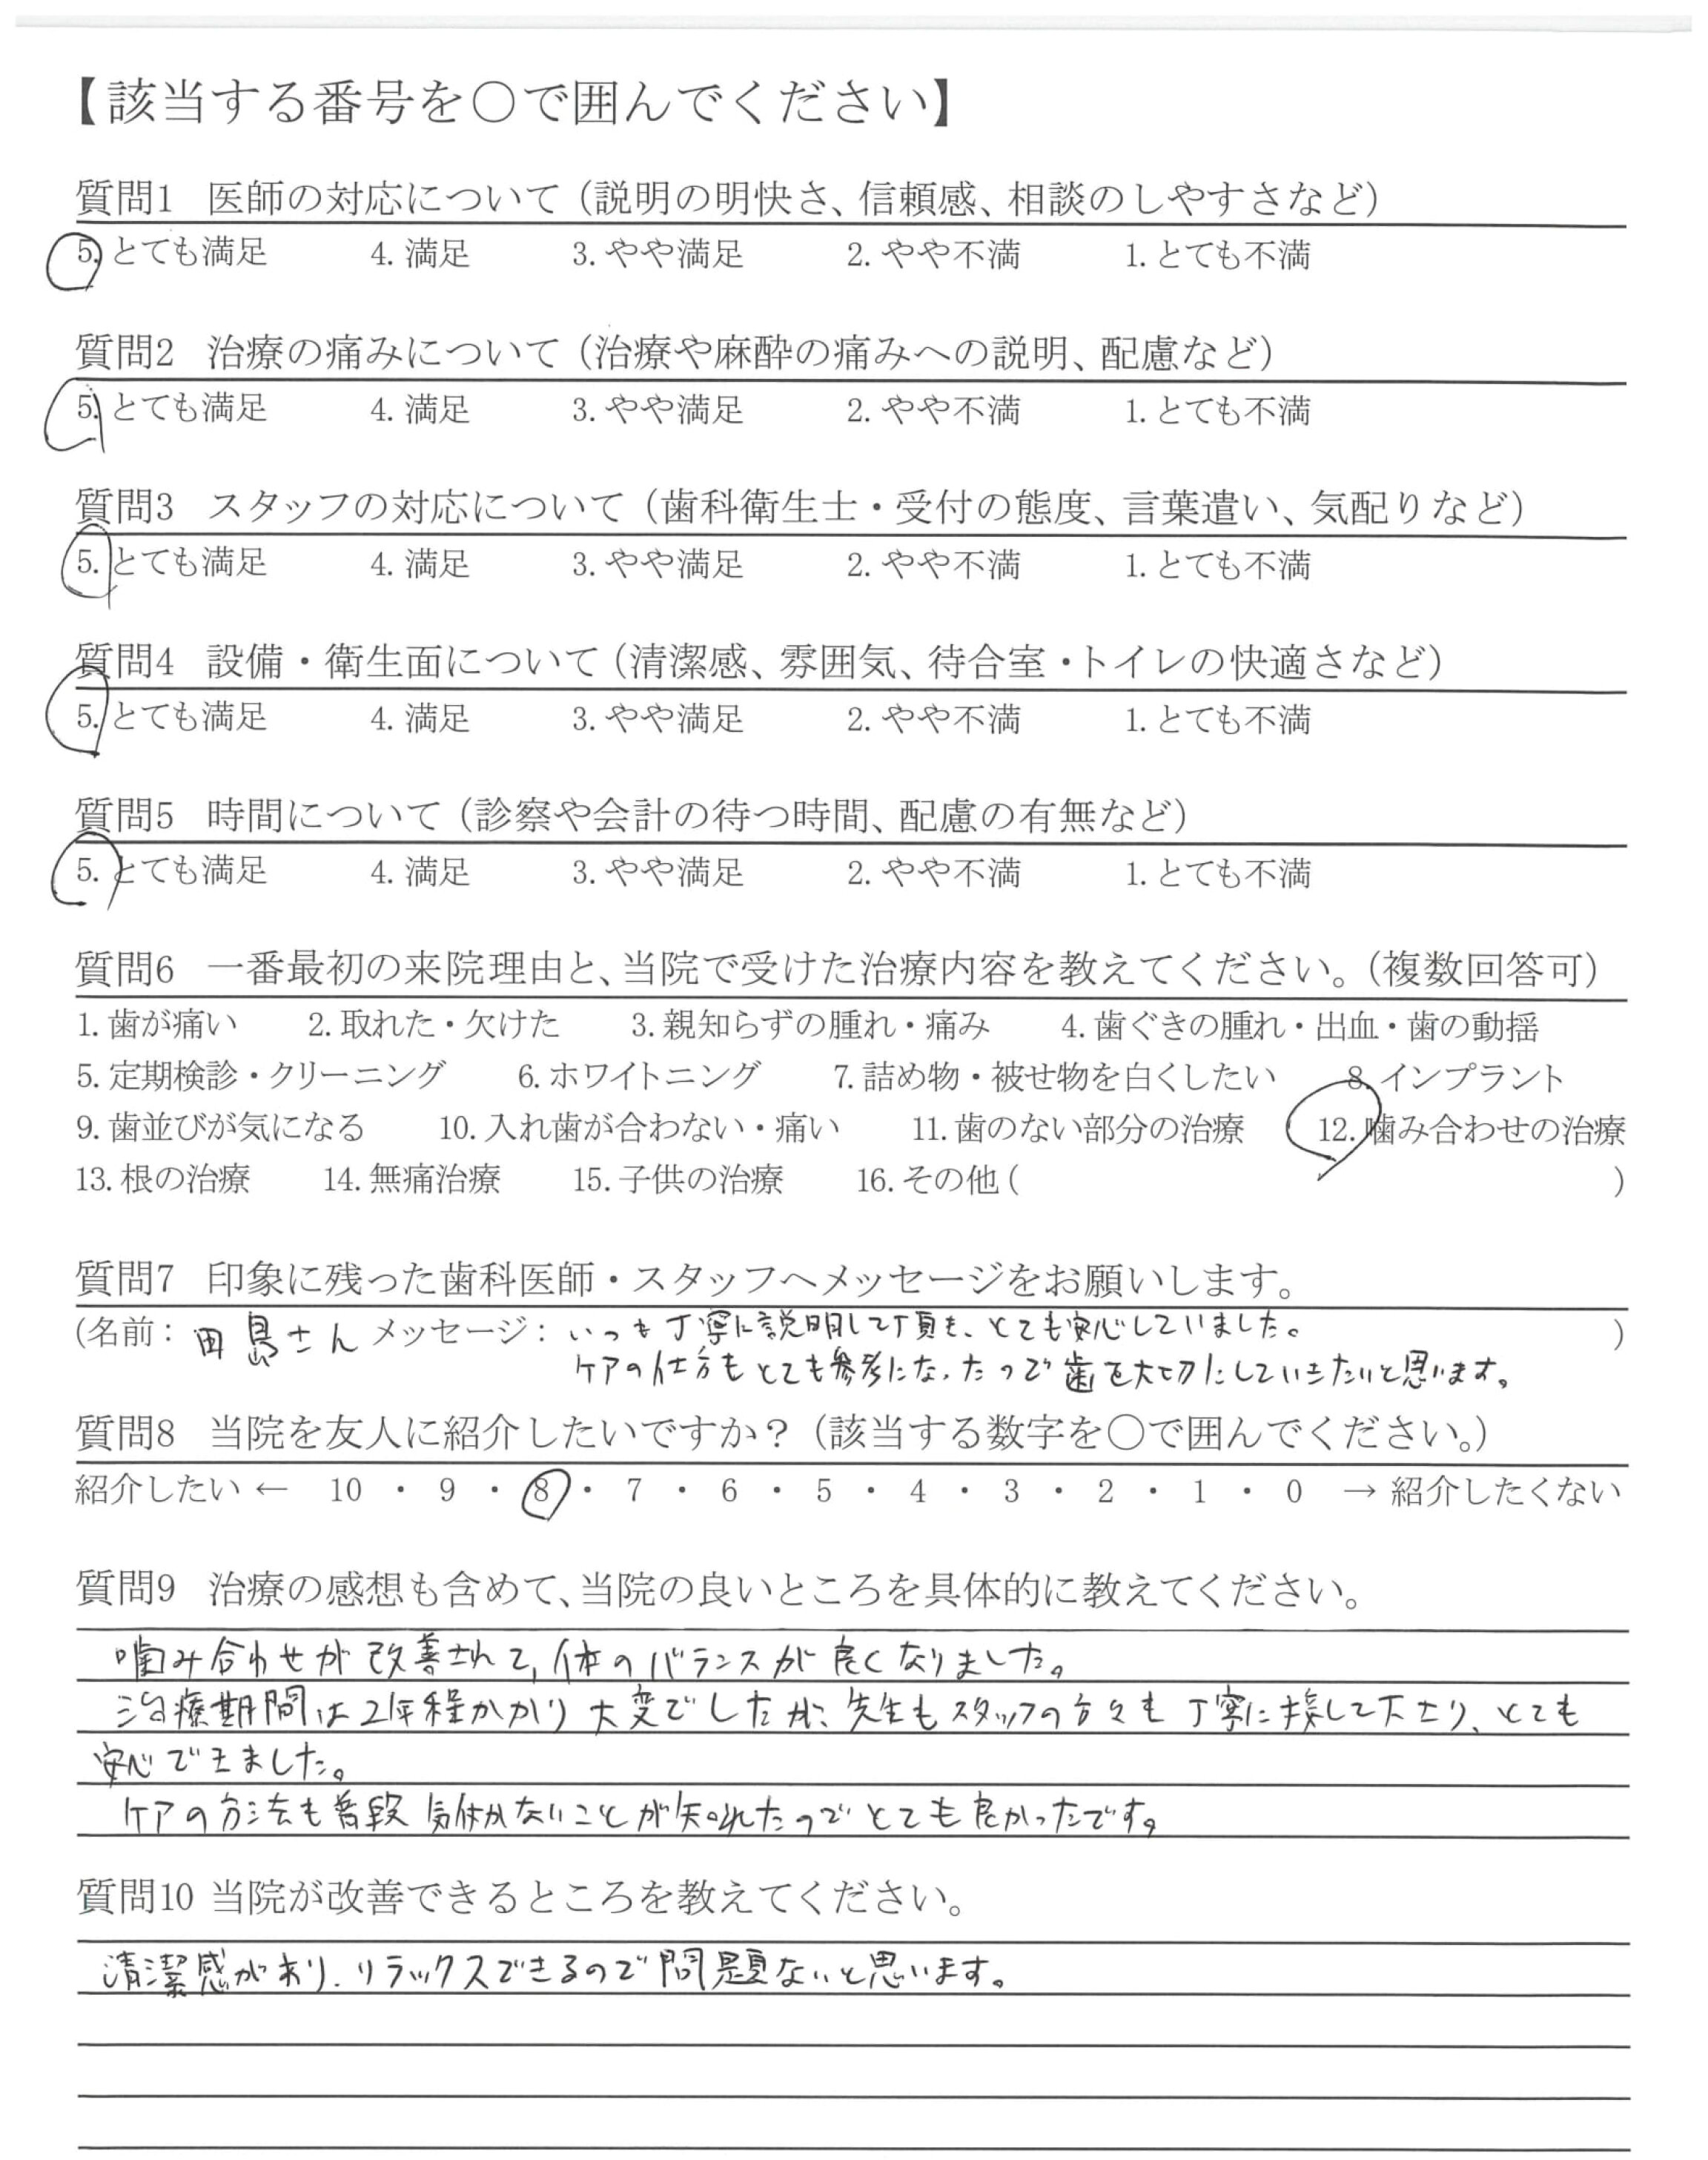 【該当する番号を○で囲んでください】
質問1 医師の対応について（説明の明快さ、信頼感、相談のしやすさなど）
5. とても満足 4. 満足 3. やや満足 2. やや不満 1. とても不満
質問2 治療の痛みについて（治療や麻酔の痛みへの説明、配慮など）
5. とても満足 4. 満足 3. やや満足 2. やや不満 1. とても不満
質問3 スタッフの対応について（歯科衛生士・受付の態度、言葉遣い、気配りなど）
5. とても満足 4. 満足 3. やや満足 2. やや不満 1. とても不満
質問4 設備・衛生面について（清潔感、雰囲気、待合室・トイレの快適さなど）
5. とても満足 4. 満足 3. やや満足 2. やや不満 1. とても不満
質問5 時間について（診察や会計の待つ時間、配慮の有無など）
5. とても満足 4. 満足 3. やや満足 2. やや不満 1. とても不満
質問6 一番最初の来院理由と、当院で受けた治療内容を教えてください。（複数回答可）
1. 歯が痛い 2. 取れた・欠けた 3. 親知らずの腫れ・痛み 4. 歯ぐきの腫れ・出血・歯の動揺
5. 定期検診・クリーニング 6. ホワイトニング 7. 詰め物・被せ物を白くしたい 8. インプラント
9. 歯並びが気になる 10. 入れ歯が合わない・痛い 11. 歯のない部分の治療 12. 噛み合わせの治療
13. 根の治療 14. 無痛治療 15. 子供の治療 16. その他 ( )
質問7 印象に残った歯科医師・スタッフへメッセージをお願いします。
(名前: 田島さん メッセージ: いつも丁寧に説明して頂き、とても安心していました。 )
ケアの仕方もとても参考になったので歯を大切にしていきたいと思います。
質問8 当院を友人に紹介したいですか？（該当する数字を○で囲んでください。）
紹介したい ← 10 ・ 9 ・ 8 ・ 7 ・ 6 ・ 5 ・ 4 ・ 3 ・ 2 ・ 1 ・ 0 → 紹介したくない
質問9 治療の感想も含めて、当院の良いところを具体的に教えてください。
噛み合わせが改善されて、体のバランスが良くなりました。
治療期間は2年程かかり大変でしたが、先生もスタッフの方々も丁寧に接して下さり、とても
安心できました。
ケアの方法も普段気付かないことが知れたのでとても良かったです。
質問10 当院が改善できるところを教えてください。
清潔感があり、リラックスできるので問題ないと思います。